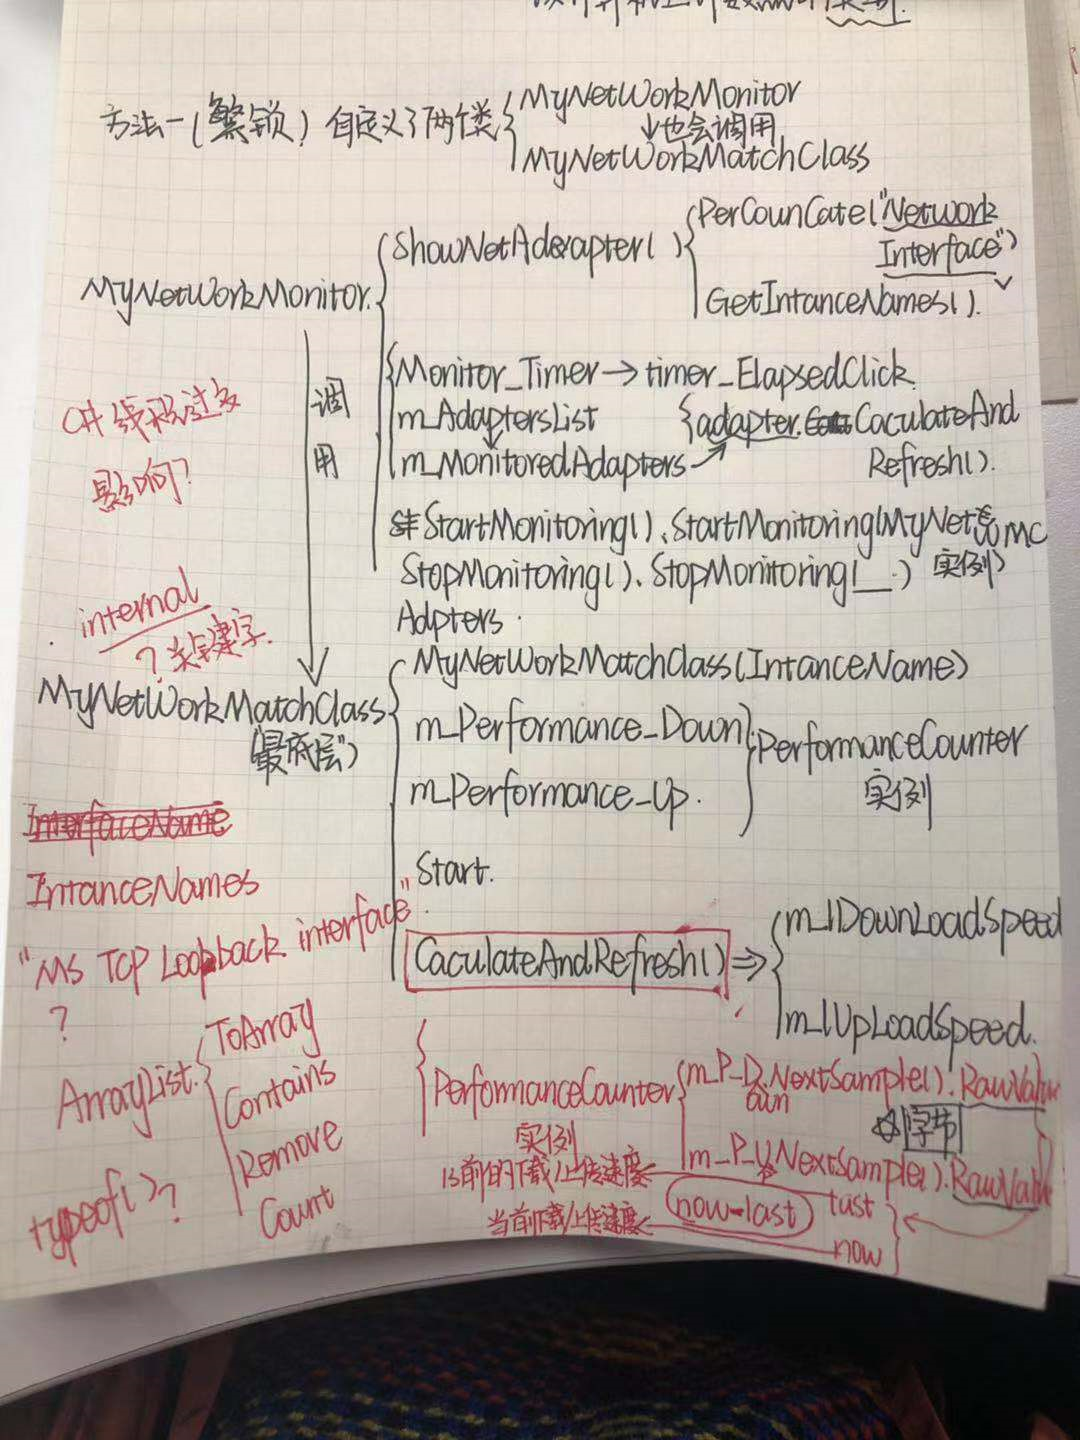 方法一(繁锁) 自定义了两个类
MyNetWorkMonitor
↓也会调用
MyNetWorkMatchClass
MyNetWorkMonitor.
ShowNetAdapter()
PerCounCate("Network
Interface")
GetIntanceNames().
Monitor_Timer → timer_ElapsedClick.
m_AdaptersList
adapter. CaculateAnd
Refresh().
m_MonitoredAdapters
调
用
StartMonitoring()、StartMonitoring(MyNet
MC
实例)
StopMonitoring()、StopMonitoring(__.)
Adpters.
C# 线程过多
影响?
internal
? 关键字.
MyNetWorkMatchClass
(最底层)
MyNetWorkMatchClass(IntanceName)
m_Performance_Down
m_Performance_Up.
PerformanceCounter
实例
Start.
CaculateAndRefresh() ⇒
m_lDownLoadSpeed
m_lUpLoadSpeed.
InterfaceName
IntanceNames
"MS TCP Loopback interface"
?
ArrayList.
ToArray
Contains
Remove
Count
typeof()?
PerformanceCounter
实例
m_P_Down.NextSample().RawValue
☆字节
m_P_Up.NextSample().RawValue
前的下载/上传速度
last
当前下载/上传速度
now-last
now